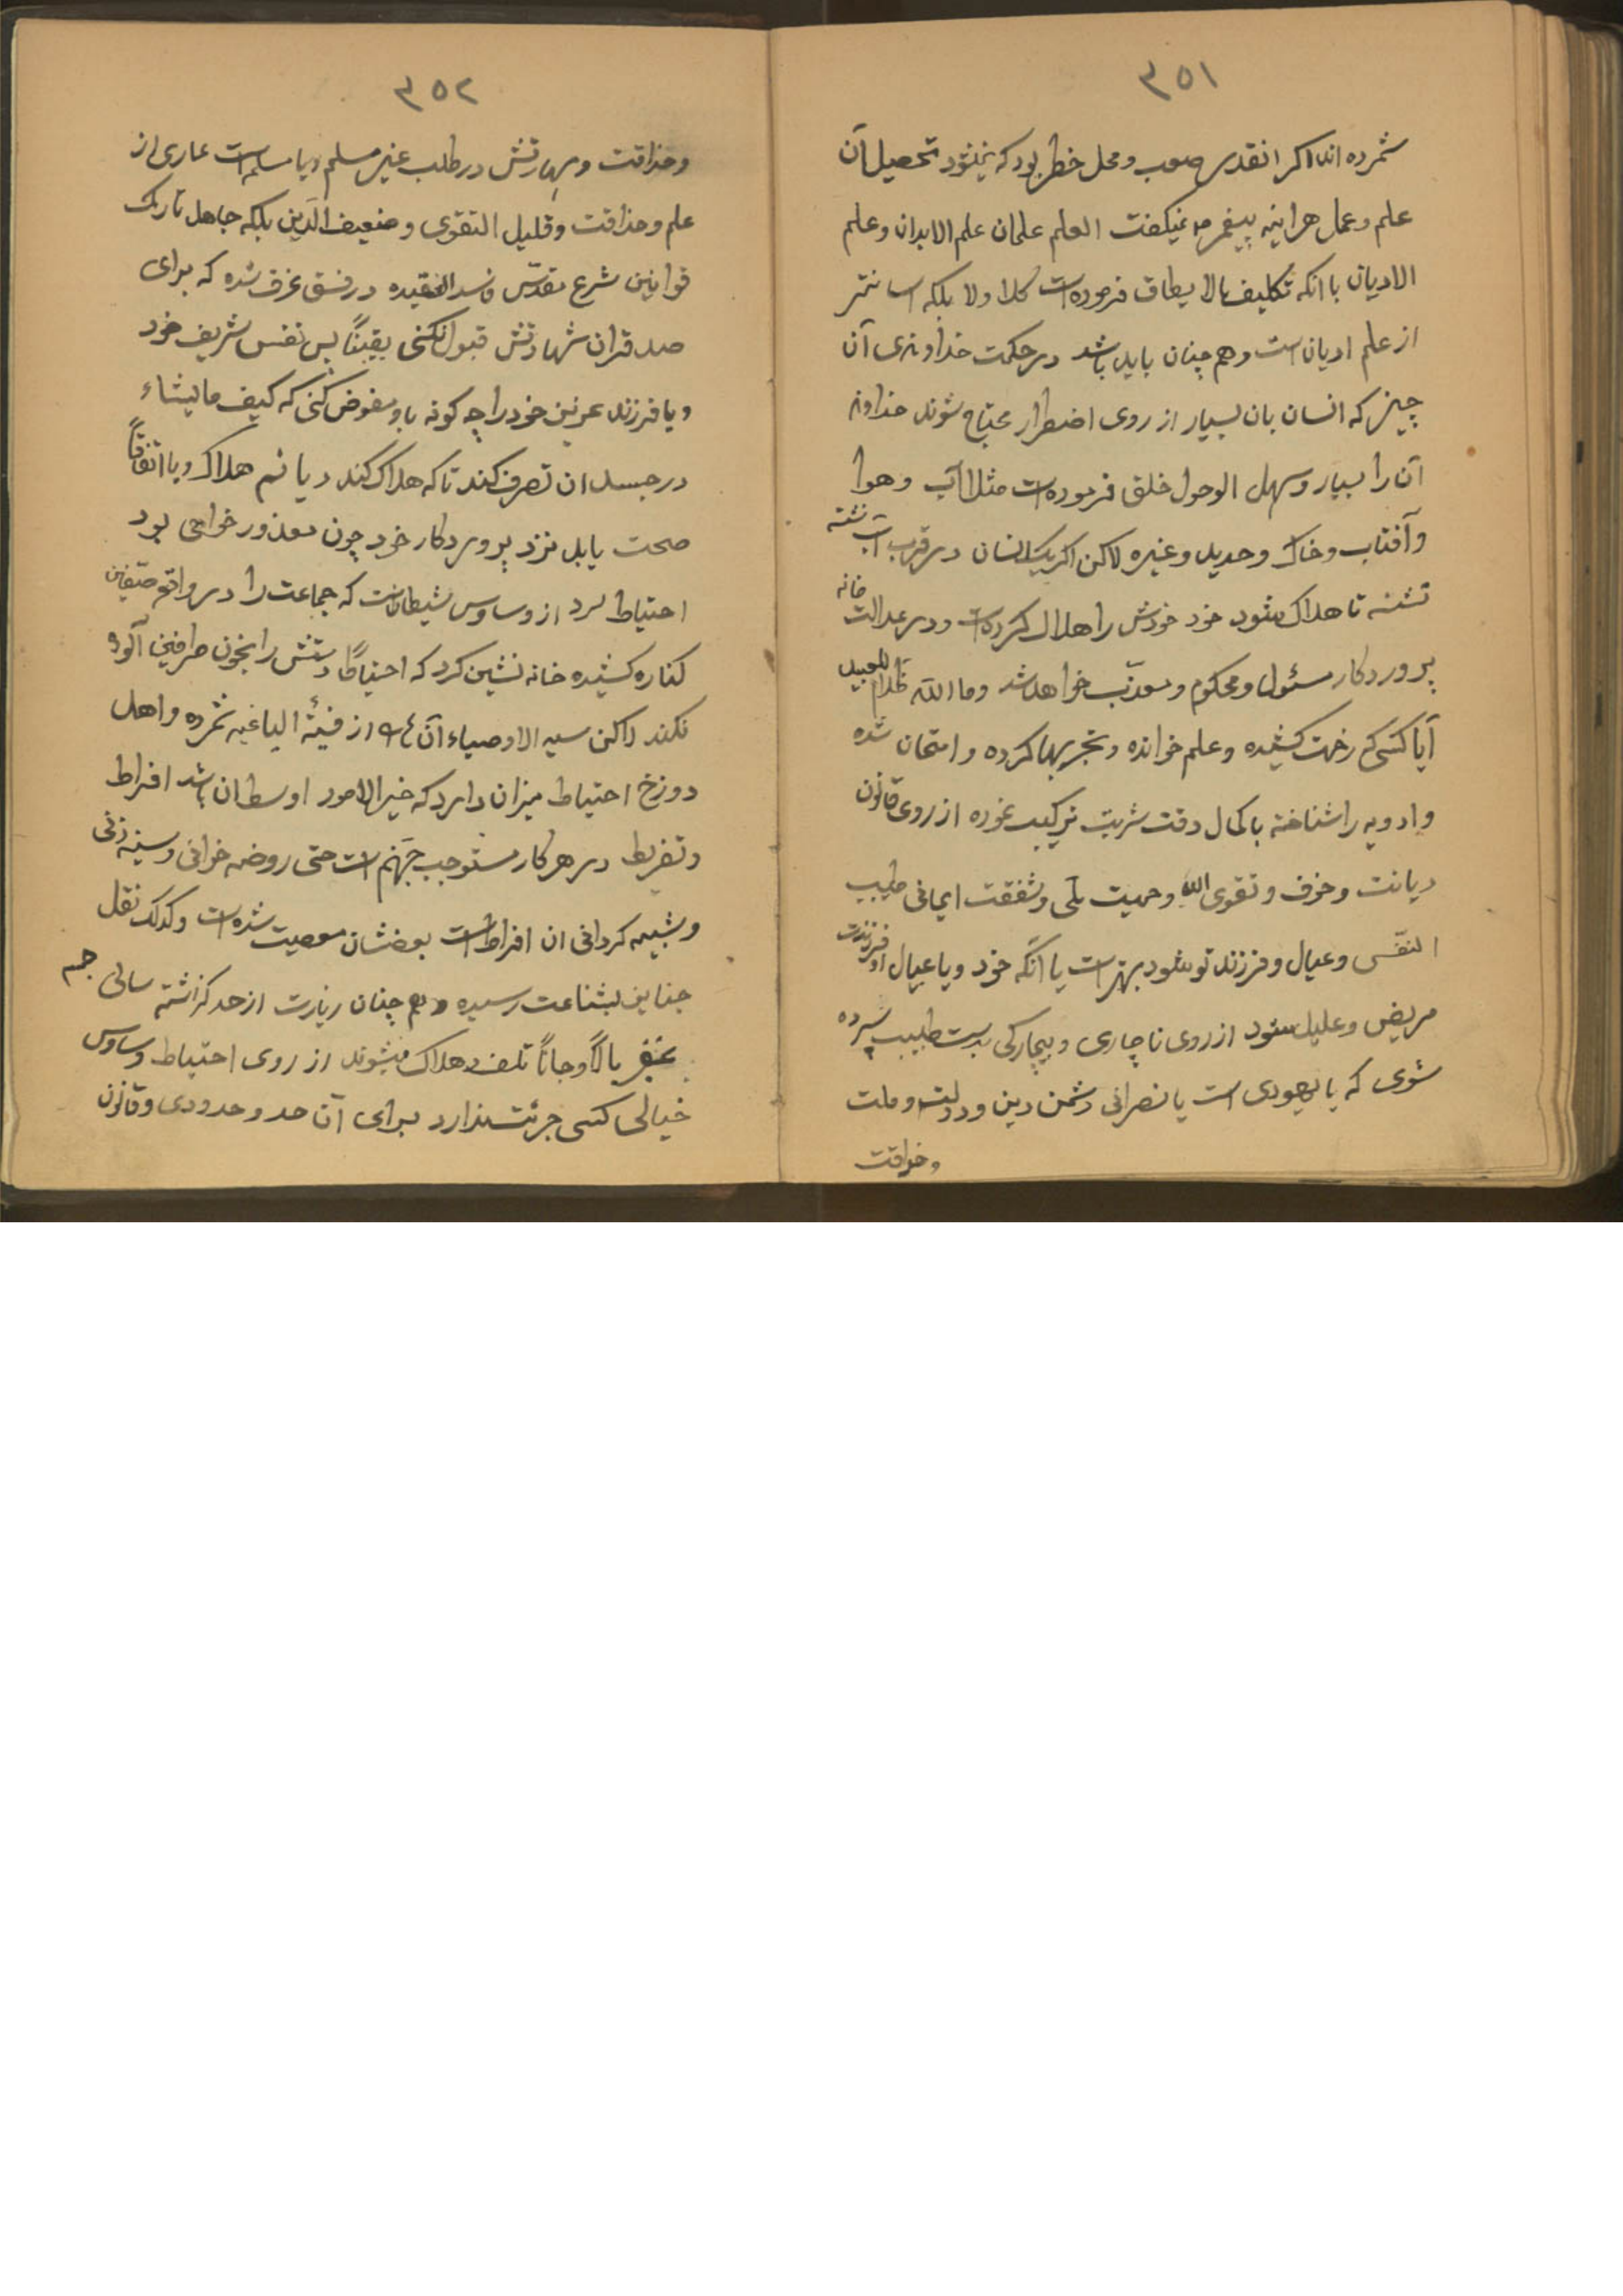 ۳۵۱
شمرده اند اکر انقدر صعب و محل خطر بود که نمیشود تحصیل آن
علم و عمل هراینه پیغمبر نمیکفت العلم علمان علم الابدان وعلم
الادیان با انکه تکلیف مالا یطاق فرموده است کلا ولا بلکه اسانتر
از علم ادیان است وهم چنان باید باشد در حکمت خداوندی آن
چیز که انسان بان بسیار از روی اضطرار محتاج شوند خداوند
آن را بسیار وسهل الوصول خلق فرموده است مثلا آب و هوا
وآفتاب وخاک وحدید وغیره لاکن اکر یک انسان در قرب آب نشسته
تشنه تا هلاک شود خود خودش را هلاک کرده است ودر عدالت خانه
پروردکار مسئول ومحکوم ومعذّب خواهد شد وما اللّه بظلام للعبید
آیا کسی که زحمت کشیده وعلم خوانده وتجربها کرده و امتحان شده
وادویه را شناخته باکمال دقت شربت ترکیب نموده از روی قانون
دیانت وخوف وتقوی الله وحمیت ملّی وشفقت ایمانی طبیب
النفس وعیال وفرزند تو شود بهتر است یا آنکه خود ویا عیال او فرزندت
مریض وعلیل شود از روی ناچاری وبیچارکی بدست طبیب سپرده
شوی که یا یهودی است یا نصرانی دشمن دین ودولت وملت
وحذاقت
۳۵۲
وحذاقت ومهارتش در طلب غیر مسلم ویا مسلم است عاری از
علم وحذاقت وقلیل التقوی وضعیف الدّین بلکه جاهل تارک
قوانین شرع مقدّس فاسد العقیده در فسق غرق شده که برای
صد قران شهادتش قبول نکنی یقیناً پس نفس شریف خود
ویا فرزند عزیز خود را چه کونه باو مفوض کنی که کیف مایشاء
در جسد ان تصرف کند تا که هلاک کند ویا نیم هلاک ویا اتفاقاً
صحت یابد نزد پروردکار خود چون معذور خواهی بود
احتیاط لرد از وساوس شیطانست که جماعت را در واقع صفّین
کناره کشیده خانه نشین کرد که احتیاطاً دستش را بخون طرفین آلوده
نکند لاکن سید الاوصیاء آن را از فیئة الباغیه شمرده واهل
دوزخ احتیاط میزان دارد که خیر الامور اوسطها باشد افراط
وتفریط در هر کار مستوجب جهنّم است حتی روضه خوانی وسینه زنی
وشبیه کردانی ان افراط است بعضشان معصیت شده است وکذلک نقل
جنایز بشناعت رسیده وهم چنان زیارت از حد کذشته سالی جم
غفیر مالاً وجاناً تلف وهلاک میشوند از روی احتیاط وساوس
خیالی کسی جرئت ندارد برای آن حد وحدودی وقانون